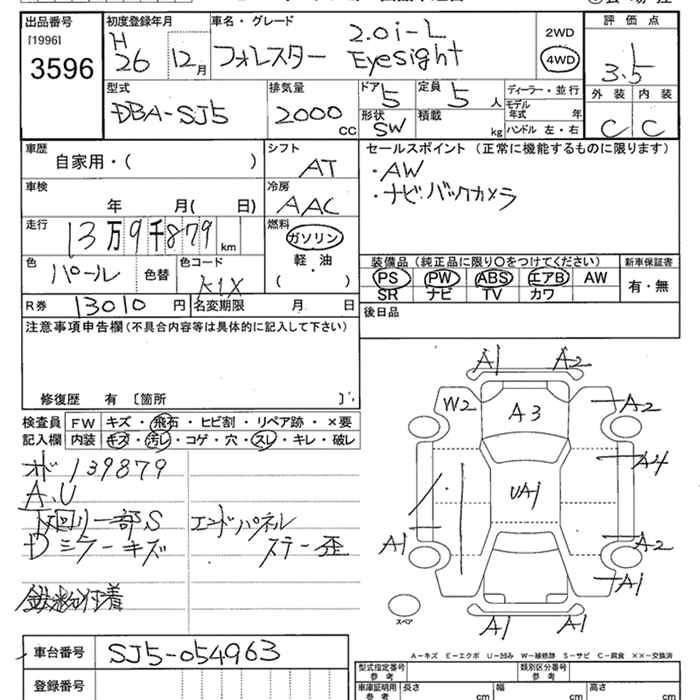 出品番号
[1996]
3596
初度登録年月
H
26 12月
車名・グレード
フォレスター 2.0i-L
Eyesight
2WD
4WD
評価点
3.5
外装 内装
C C
型式
DBA-SJ5
排気量
2000
CC
ドア
5
定員
5 人
形状
SW
積載
kg
ディーラー・並行
モデル
年式 年
ハンドル 左・右
車歴
自家用・( )
シフト
AT
車検
年 月( 日)
冷房
AAC
走行
13万9千879
km
燃料
ガソリン
軽・油
( )
色
パール
色替
色コード
K1X
R券
13010 円
名変期限 月 日
セールスポイント (正常に機能するものに限ります)
・AW
・ナビ・バックカメラ
装備品 (純正品に限り○をつけてください)
PS PW ABS エアB AW
SR ナビ TV カワ
新車保証書
有・無
後日品
注意事項申告欄(不具合内容等は具体的に記入して下さい)
修復歴 有 〔箇所 〕
検査員
記入欄
FW キズ・飛石・ヒビ割・リペア跡・×要
内装 キズ・汚レ・コゲ・穴・スレ・キレ・破レ
オド139879
A.U
下回リ一部S
Dミラーキズ
エンドパネル
ステー歪
鉄粉付着
A1 A2
W2
A3
A2
A4
UA1
A1
A2
A1
A1 A1
スペア
A-キズ E-エクボ U-凹み W-補修跡 S-サビ C-腐食 ××-交換済
車台番号
SJ5-054963
登録番号
型式指定番号
参考
類別区分番号
参考
車庫証明用
参考
長さ cm
幅 cm
高さ cm